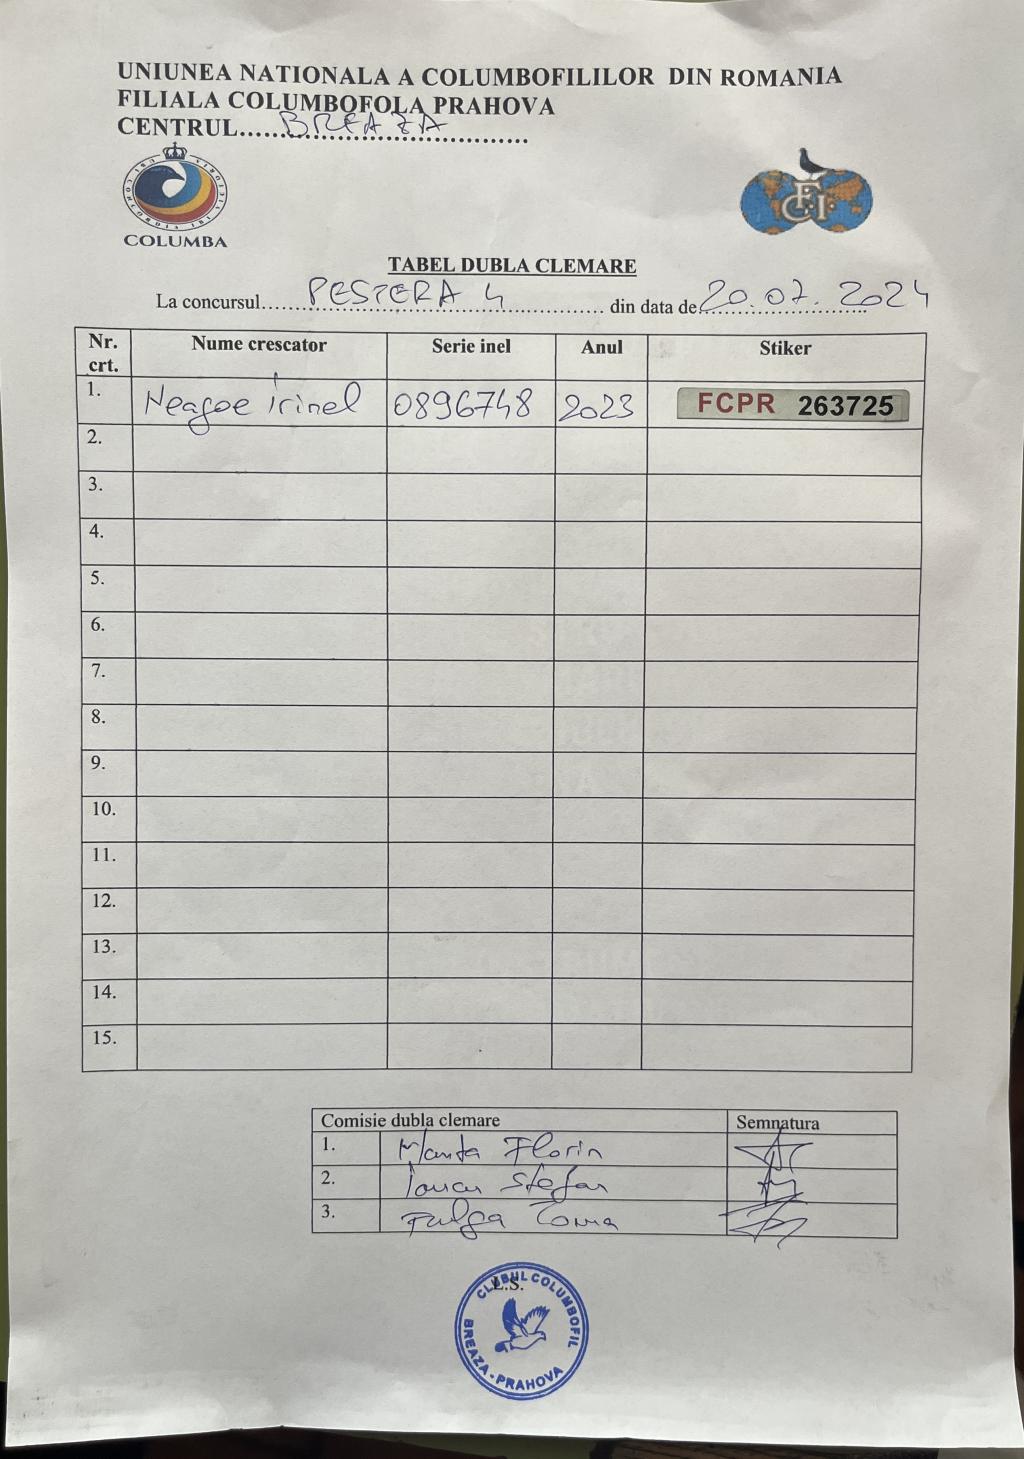 UNIUNEA NATIONALA A COLUMBOFILILOR DIN ROMANIA
FILIALA COLUMBOFOLA PRAHOVA
CENTRUL.....BREAZA.....
COLUMBA
FCI
TABEL DUBLA CLEMARE
La concursul.....PESTERA 4..... din data de 20.07.2024
Nr. crt. Nume crescator Serie inel Anul Stiker
1. Neagoe Irinel 0896748 2023 FCPR 263725
2.
3.
4.
5.
6.
7.
8.
9.
10.
11.
12.
13.
14.
15.
Comisie dubla clemare Semnatura
1. Manta Florin
2. Iancu Stefan
3. Fulga Toma
L.S.
CLUBUL COLUMBOFIL
BREAZA - PRAHOVA